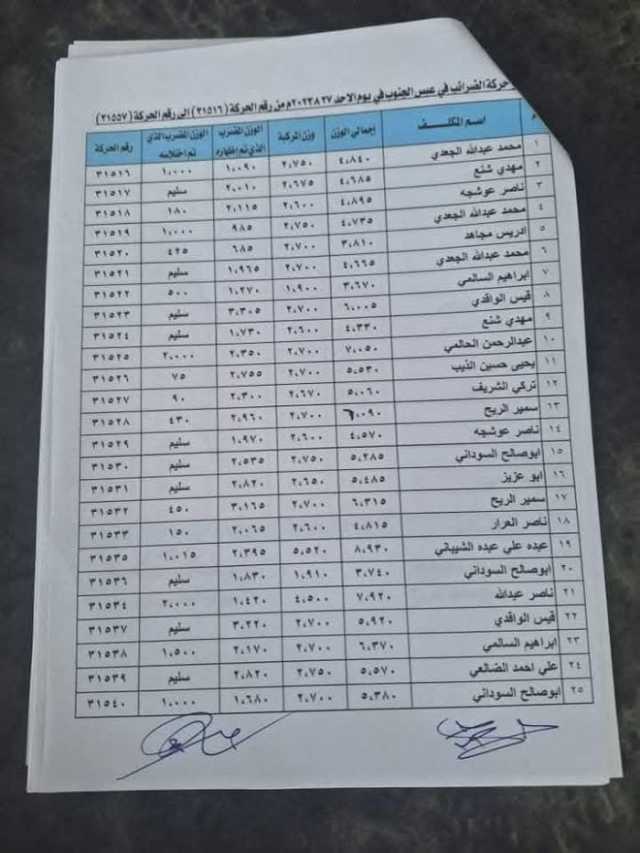 حركة الضرائب في عبس الجنوب في يوم الاحد ٢٠٢٣٨٢٧م من رقم الحركة (٣١٥١٦) الى رقم الحركة (٣١٥٥٧)
م اسم المكلف إجمالي الوزن وزن المركبة الوزن المضرب الذي تم اظهاره الوزن المضرب الذي تم اختلاسه رقم الحركة
١ محمد عبدالله الجعدي ٤،٨٤٠ ٢،٧٥٠ ١،٠٩٠ ١،٠٠٠ ٣١٥١٦
٢ مهدي شنع ٤،٦٨٥ ٢،٦٧٥ ٢،٠١٠ سليم ٣١٥١٧
٣ ناصر عوشجه ٤،٨٩٥ ٢،٦٠٠ ٢،١١٥ ١٨٠ ٣١٥١٨
٤ محمد عبدالله الجعدي ٤،٧٣٥ ٢،٧٥٠ ٩٨٥ ١،٠٠٠ ٣١٥١٩
٥ ادريس مجاهد ٣،٨١٠ ٢،٧٠٠ ٦٨٥ ٤٢٥ ٣١٥٢٠
٦ محمد عبدالله الجعدي ٤،٦٦٥ ٢،٧٠٠ ١،٩٦٥ سليم ٣١٥٢١
٧ ابراهيم السالمي ٣،٦٧٠ ١،٩٠٠ ١،٢٧٠ ٥٠٠ ٣١٥٢٢
٨ قيس الواقدي ٦،٠٠٥ ٢،٧٠٠ ٣،٣٠٥ سليم ٣١٥٢٣
٩ مهدي شنع ٤،٣٣٠ ٢،٦٠٠ ١،٧٣٠ سليم ٣١٥٢٤
١٠ عبدالرحمن الحالمي ٧،٠٥٠ ٢،٧٠٠ ٢،٣٥٠ ٢،٠٠٠ ٣١٥٢٥
١١ يحيى حسين الذيب ٥،٥٣٠ ٢،٧٠٠ ٢،٧٥٥ ٧٥ ٣١٥٢٦
١٢ تركي الشريف ٥،٠٦٠ ٢،٦٧٠ ٢،٣٠٠ ٩٠ ٣١٥٢٧
١٣ سمير الريح ٦،٠٩٠ ٢،٧٠٠ ٢،٩٦٠ ٤٣٠ ٣١٥٢٨
١٤ ناصر عوشجه ٤،٥٧٠ ٢،٦٠٠ ١،٩٧٠ سليم ٣١٥٢٩
١٥ ابوصالح السوداني ٥،٢٨٥ ٢،٧٥٠ ٢،٥٣٥ سليم ٣١٥٣٠
١٦ ابو عزيز ٥،٤٨٥ ٢،٦٥٠ ٢،٨٢٠ سليم ٣١٥٣١
١٧ سمير الريح ٦،٣١٥ ٢،٧٠٠ ٣،١٦٥ ٤٥٠ ٣١٥٣٢
١٨ ناصر العرار ٤،٨١٥ ٢،٦٠٠ ٢،٠٦٥ ١٥٠ ٣١٥٣٣
١٩ عبده علي عبده الشيباني ٨،٩٣٠ ٥،٥٢٠ ٢،٣٩٥ ١،٠١٥ ٣١٥٣٥
٢٠ ابوصالح السوداني ٣،٧٤٠ ١،٩١٠ ١،٨٣٠ سليم ٣١٥٣٦
٢١ ناصر عبدالله ٧،٩٢٠ ٤،٥٠٠ ١،٤٢٠ ٢،٠٠٠ ٣١٥٣٤
٢٢ قيس الواقدي ٥،٩٢٠ ٢،٧٠٠ ٣،٢٢٠ سليم ٣١٥٣٧
٢٣ ابراهيم السالمي ٦،٣٧٠ ٢،٧٠٠ ٢،١٧٠ ١،٥٠٠ ٣١٥٣٨
٢٤ علي احمد الضالعي ٥،٥٧٠ ٢،٧٥٠ ٢،٨٢٠ سليم ٣١٥٣٩
٢٥ ابوصالح السوداني ٥،٣٨٠ ٢،٧٠٠ ١،٦٨٠ ١،٠٠٠ ٣١٥٤٠